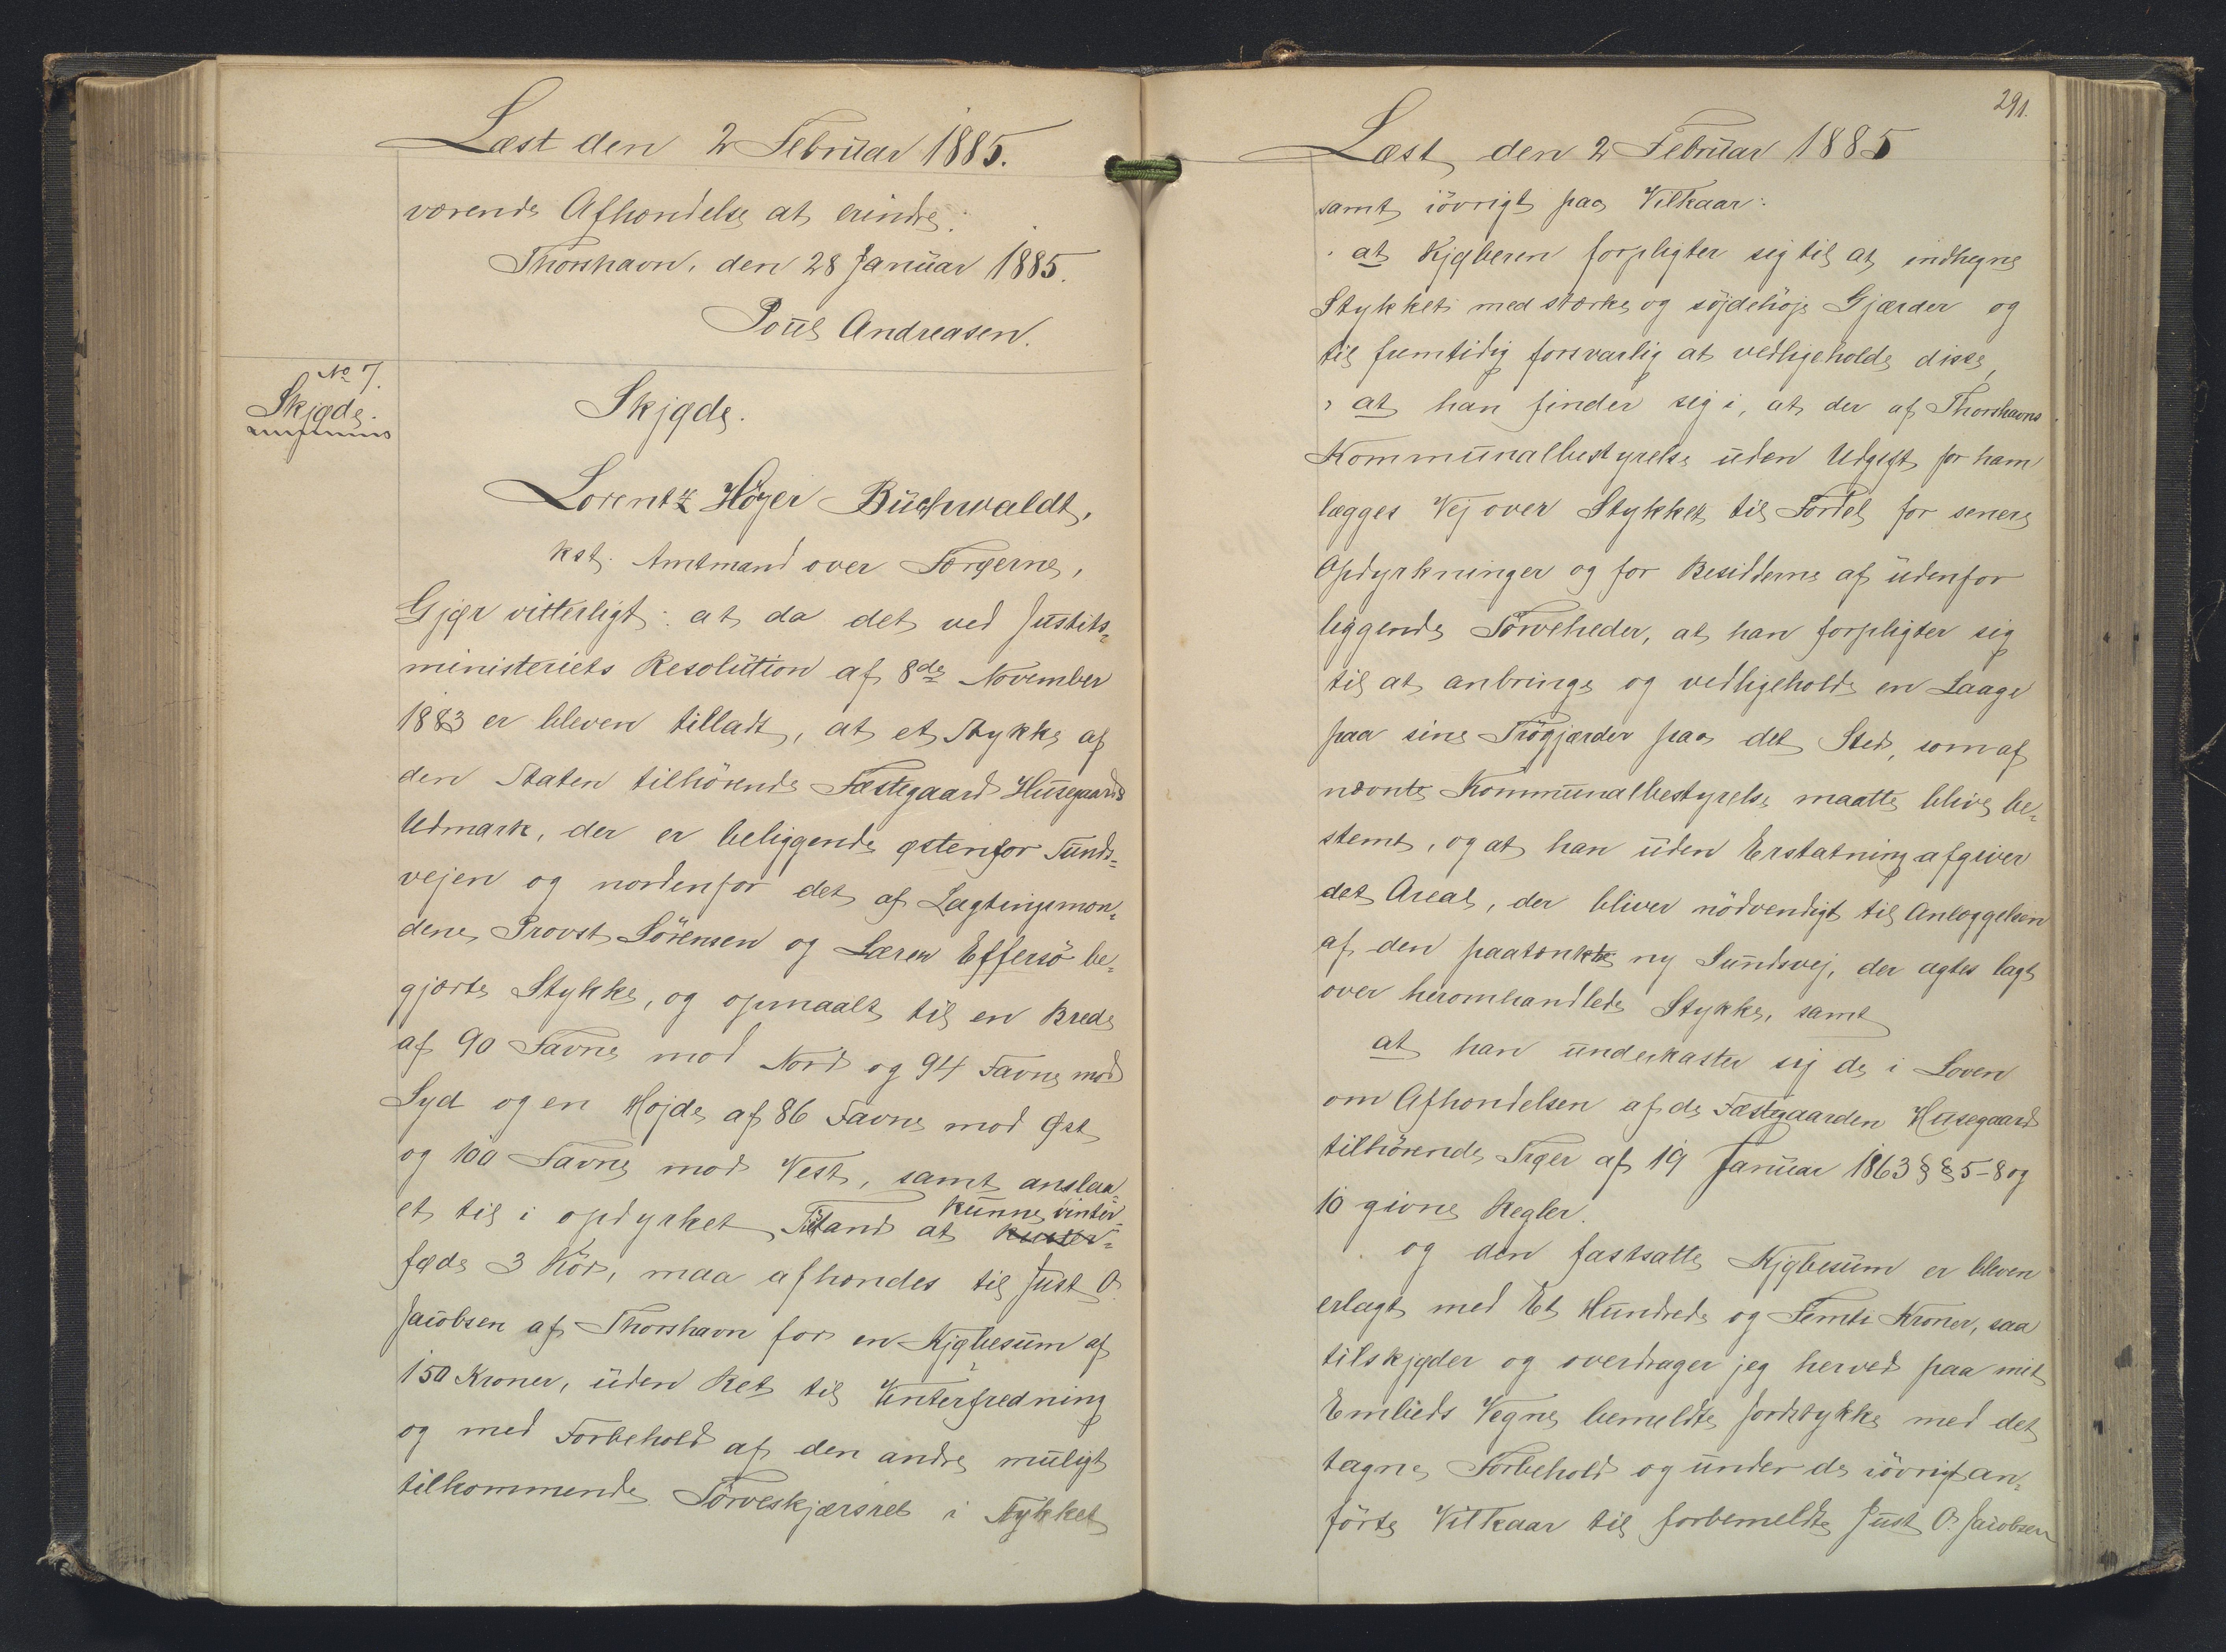 Læst den 2 Februar 1885.
værende Afhændelse at erindre.
Thorshavn, den 28 Januar 1885.
Poul Andreasen.
No 7.
Skjøde.
Skjøde.
Lorentz Høyer Buchwaldt,
kst. Amtmand over Færøerne,
Gjør vitterligt: at da det ved Justits-
ministeriets Resolution af 8de November
1883 er bleven tilladt, at et Stykke af
den Staten tilhørende Fæstegaard Husegaards
Udmark, der er beliggende østenfor Sunds-
vejen og nordenfor det af Lagtingsmæn-
dene, Provst Sörensen og Lærer Effersö be-
gjærte Stykke, og opmaalt til en Brede
af 90 Favne mod Nord og 94 Favne mod
Syd og en Højde af 86 Favne mod Øst
og 100 Favne mod Vest, samt anslaa-
et til i opdyrket Tilstand at kunne vinter-
føde 3 Kör, maa afhændes til Just O.
Jacobsen af Thorshavn for en Kjøbesum af
150 Kroner, uden Ret til Vinterfredning
og med Forbehold af den andre muligt
tilkommende Törveskjærsret i Stykket
291.
Læst den 2 Februar 1885
samt iövrigt paa Vilkaar:
at Kjøberen forpligter sig til at indhegne
Stykket med stærke og söjdehöje Gjærder og
til fremtidig forsvarlig at vedligeholde disse,
at han finder sig i, at der af Thorshavns
Kommunalbestyrelse uden Udgift for ham
lægges Vej over Stykket til Fordel for senere
Opdyrkninger og for Besidderne af udenfor
liggende Törveheder, at han forpligter sig
til at anbringe og vedligeholde en Laage
paa sine Trögjærder paa det Sted, som af
nævnte Kommunalbestyrelse maatte blive be-
stemt, og at han uden Erstatning afgiver
det Areal, der bliver nödvendigt til Anlæggelsen
af den paatænkte ny Sundsvej, der agtes lagt
over heromhandlede Stykke, samt
at han underkaster sig de i Loven
om Afhændelsen af de Fæstegaarden Husegaard
tilhörende Trøer af 19 Januar 1863 §§ 5-8 og
10 givne Regler.
og den fastsatte Kjøbesum er bleven
erlagt med Et Hundrede og Femti Kroner, saa
tilskjøder og overdrager jeg herved paa mit
Embeds Vegne bemeldte Jordstykke med det
tagne Forbehold og under de iövrigt an-
förte Vilkaar til forbemeldte Just O. Jacobsen